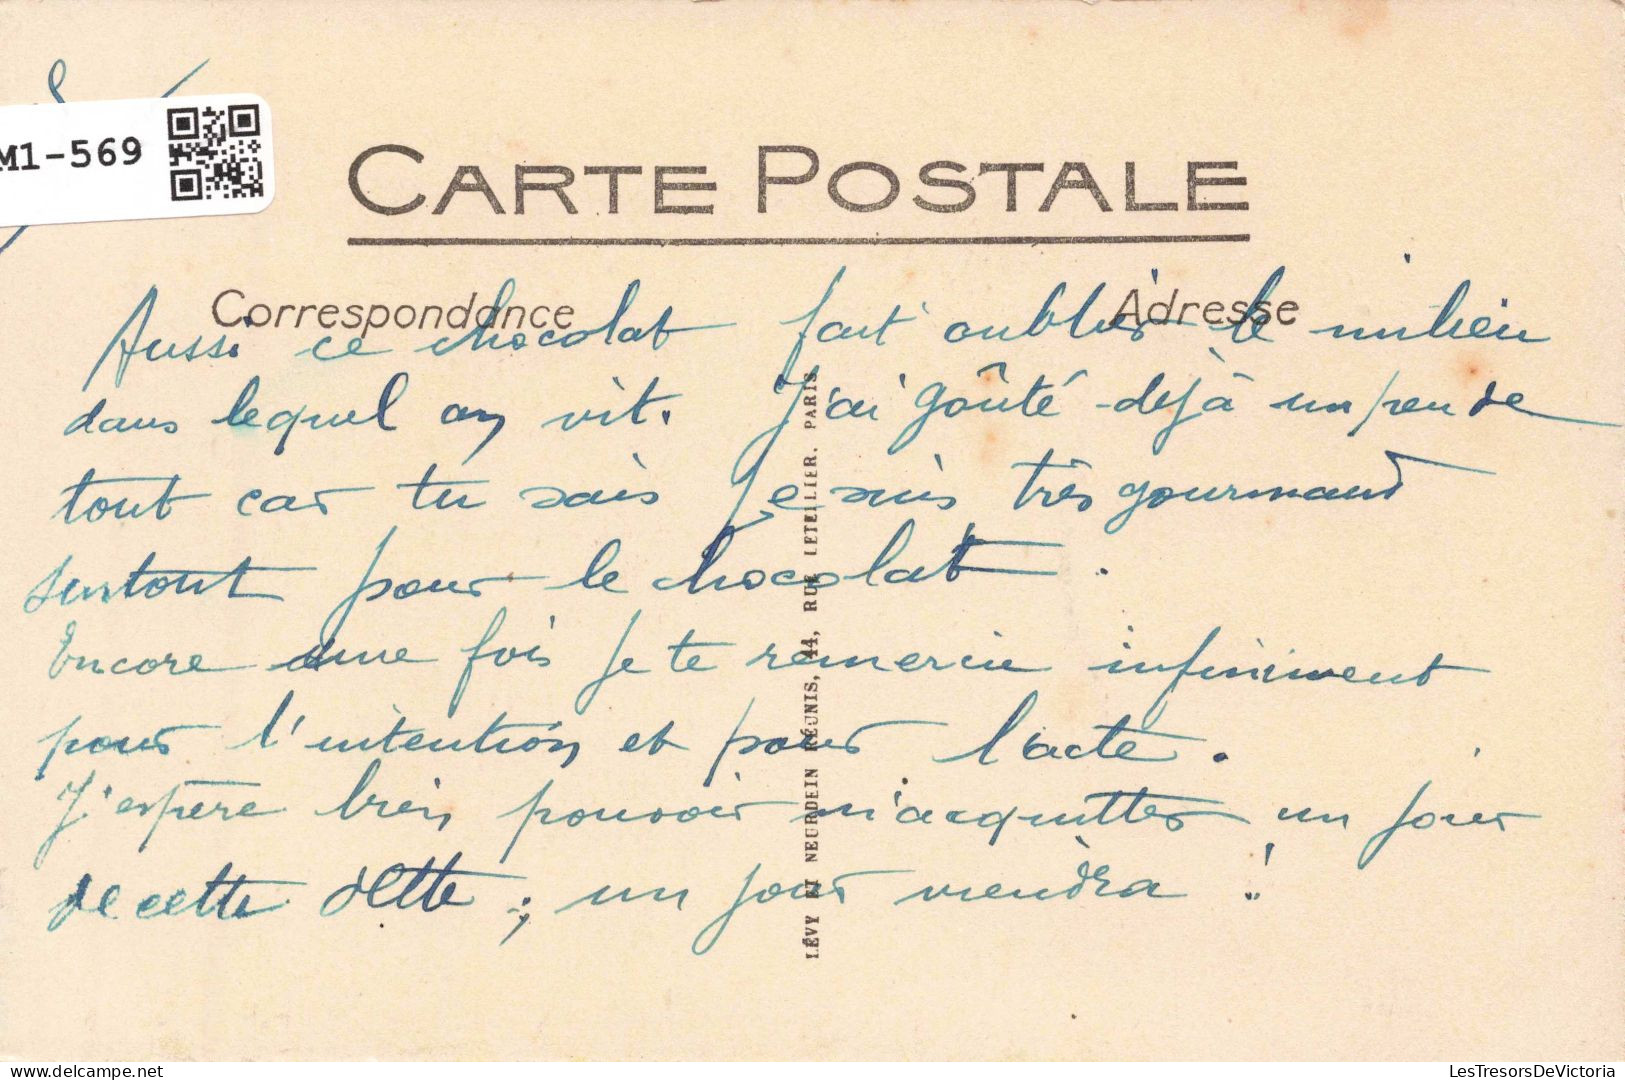 M1-569
CARTE POSTALE
Correspondance
Adresse
Aussi ce chocolat fait oublier le milieu
dans lequel on vit. J'ai goûté déjà un peu de
tout car tu sais je suis très gourmand
surtout pour le chocolat.
Encore une fois je te remercie infiniment
pour l'intention et pour l'acte.
J'espère bien pouvoir m'acquitter un jour
de cette dette ; un jour viendra !
LÉVY ET NEURDEIN RÉUNIS, 44, RUE LETELLIER, PARIS
delcampe.net
LesTresorsDeVictoria